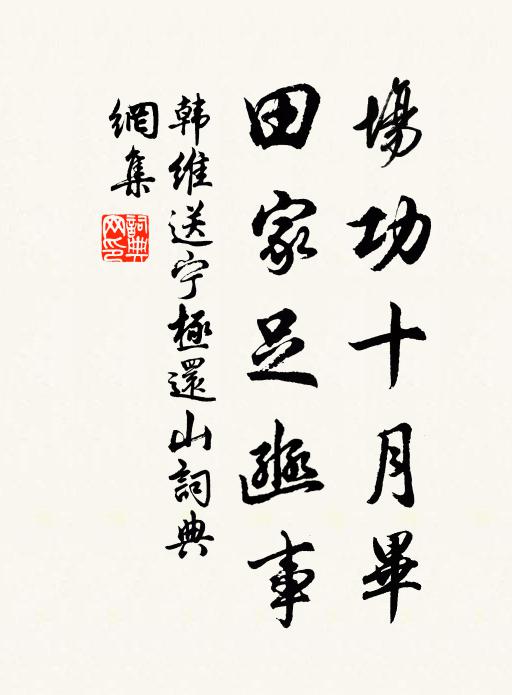 場功十月畢
田家足幽事
韩維送宁極還山詞典
網集
詞典
网印